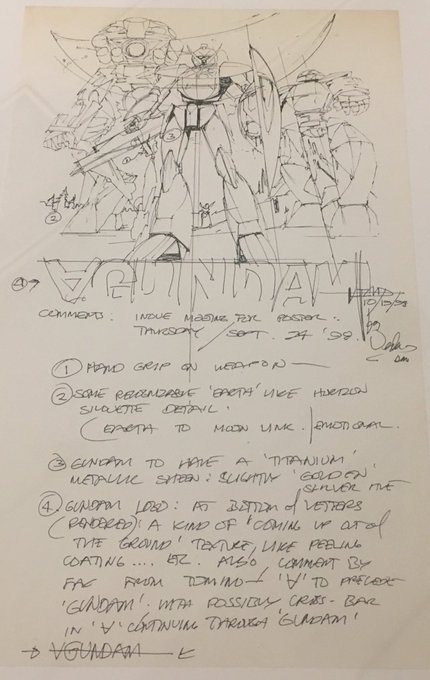 ①
②
③
④→
∀GUNDAM
10/12/98
COMMENTS. INOUE MEETING FOR POSTER..
THURSDAY / SEPT. 24 '98.
① HAND GRIP ON WEAPON —
② SOME RECOGNIZABLE 'EARTH' LIKE HORIZON
SILHOUETTE DETAIL.
(EARTH TO MOON LINK. EMOTIONAL.
③ GUNDAM TO HAVE A 'TITANIUM'
METALLIC SHEEN: SLIGHTLY 'GOLDEN'
SILVER
④ GUNDAM LOGO: AT BOTTOM of LETTERS
(RENDERED): A KIND OF 'COMING UP OUT of
THE GROUND' TEXTURE, LIKE PEELING
COATING .... ETC. ALSO, COMMENT BY
FAX FROM TOMINO — '∀' TO PRECEDE
'GUNDAM'. WITH POSSIBLY CROSS-BAR
IN '∀' CONTINUING THROUGH 'GUNDAM'
∀GUNDAM